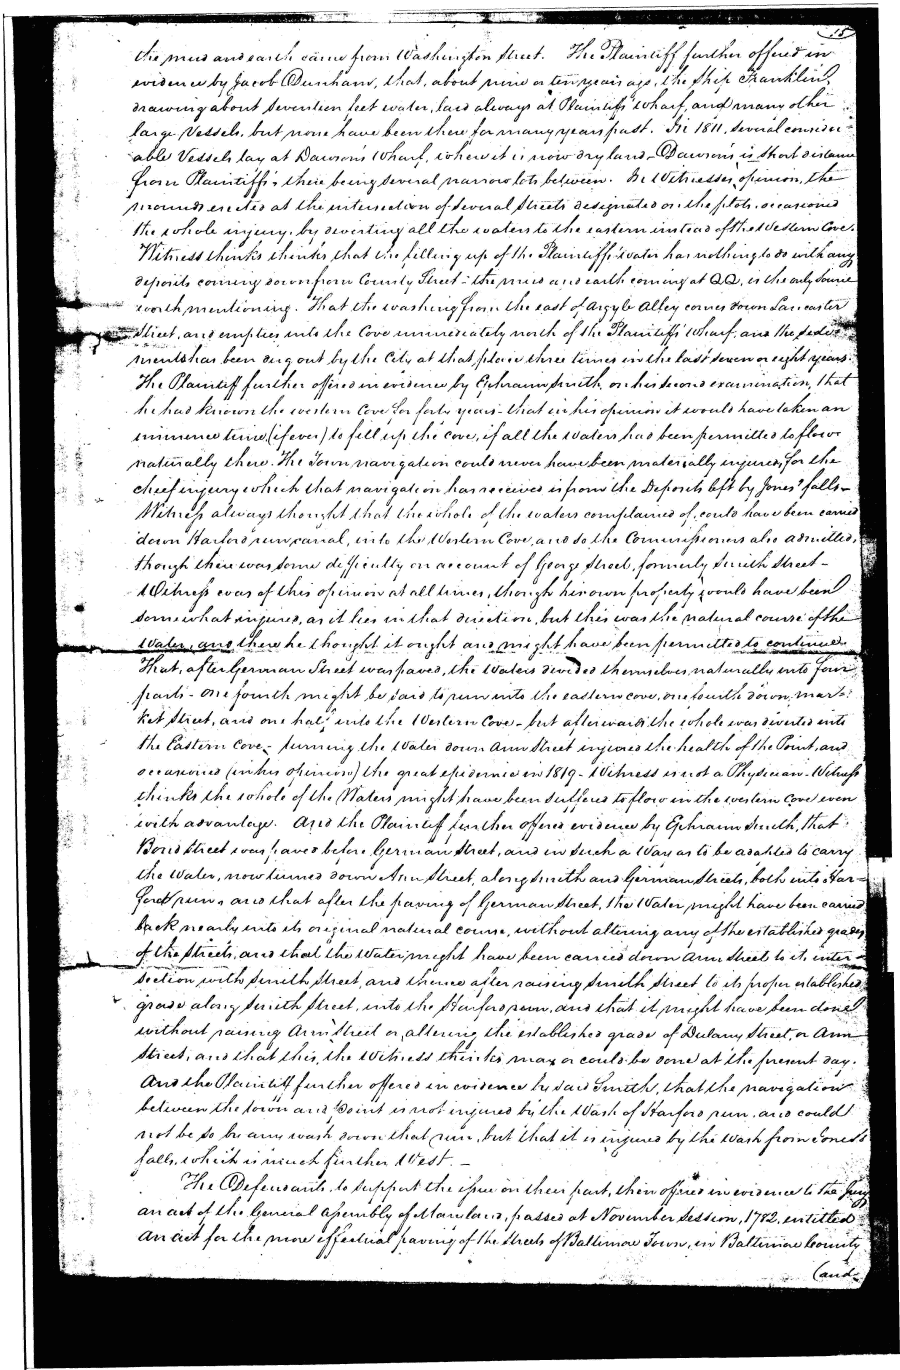 15
the mud and earth came from Washington Street. The Plaintiff further offered in
evidence by Jacob Dunham, that, about nine or ten years ago, the Ship Franklin,
drawing about seventeen feet water, laid always at Plaintiff's wharf, and many other
large Vessels, but none have been there for many years past. In 1811, several consider-
able Vessels lay at Dawson's wharf, where it is now dry land - Dawson's is short distance
from Plaintiff's, there being several narrow lots between. In Witnesses' opinion, the
mounds erected at the intersection of several Streets designated on the plots, occasioned
the whole injury, by diverting all the waters to the eastern instead of the Western Cove.
Witness thinks thinks, that the filling up of the Plaintiff's water has nothing to do with any
deposits coming down from County Street - the mud and earth coming at QQ, is the only source
worth mentioning. That the washing from the east of Argyle Alley comes down Lancaster
Street, and empties into the Cove immediately north of the Plaintiff's wharf, and the sedi-
ments has been dug out by the City at that place three times in the last seven or eight years.
The Plaintiff further offered in evidence by Ephraim Smith, on his second examination, that
he had known the western Cove for forty years - that in his opinion it would have taken an
immense time, (if ever) to fill up the cove, if all the waters had been permitted to flow
naturally there. The Town navigation could never have been materially injured, for the
chief injury which that navigation has received is from the Deposits left by Jones' falls -
Witness always thought that the whole of the waters complained of, could have been carried
down Harford run canal, into the Western Cove, and so the Commissioners also admitted,
though there was some difficulty on account of George Street, formerly Smith Street -
Witness was of this opinion at all times, though his own property would have been
somewhat injured, as it lies in that direction, but this was the natural course of the
water, and there he thought it ought and might have been permitted to continue.
That, after German Street was paved, the waters divided themselves naturally into four
parts - one fourth might be said to run into the eastern cove, one fourth down mar-
ket street, and one half into the Western Cove - but afterwards the whole was diverted into
the Eastern Cove - turning the water down Ann Street injured the health of the Point, and
occasioned (in his opinion) the great epidemic in 1819 - Witness is not a Physician - Witness
thinks the whole of the Waters might have been suffered to flow in the western Cove even
with advantage. And the Plaintiff further offered evidence by Ephraim Smith, that
Bond street was paved before German Street, and in such a way as to be adapted to carry
the water, now turned down Ann Street, along Smith and German Streets, both into Har-
ford run, and that after the paving of German Street, the water might have been carried
back nearly into its original natural course, without altering any of the established grades
of the Streets, and that the water might have been carried down Ann Street to its inter-
section with Smith Street, and thence after raising Smith Street to its proper established
grade along Smith Street, into the Harford run, and that it might have been done
without raising Ann Street or altering the established grade of Dulany Street, or Ann
Street, and that this, the witness thinks may or could be done at the present day.
And the Plaintiff further offered in evidence by said Smith, that the navigation
between the town and Point is not injured by the Wash of Harford run, and could
not be so by any wash down that run, but that it is injured by the wash from Jones's
falls, which is much further West. -
The Defendants, to support the issue on their part, then offered in evidence to the Jury
an act of the General Assembly of Maryland, passed at November Session, 1782, entitled
An act for the more effectual paving of the Streets of Baltimore Town, in Baltimore County
(and